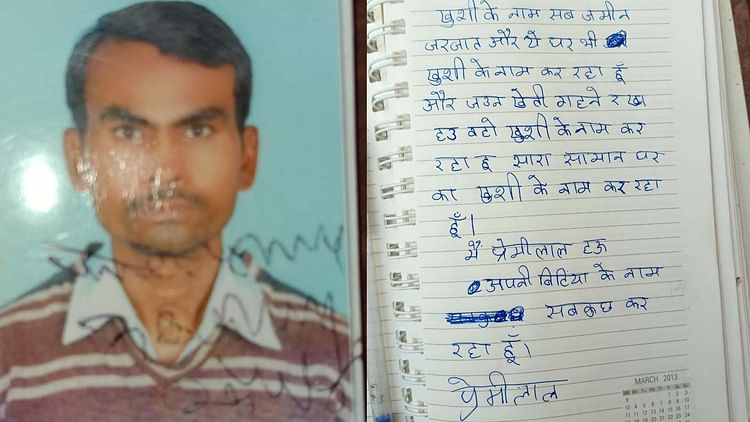 खुशी के नाम सब जमीन
जरजात और ये घर भी
खुशी के नाम कर रहा हूँ
और जउन खेती गहने रखा
हउ वहो खुशी के नाम कर
रहा हूं सारा सामान घर
का खुशी के नाम कर रहा
हूँ।
मैं प्रेमीलाल हऊ
अपनी बिटिया के नाम
सब कुछ कर
रहा हूँ।
प्रेमीलाल
MARCH 2013